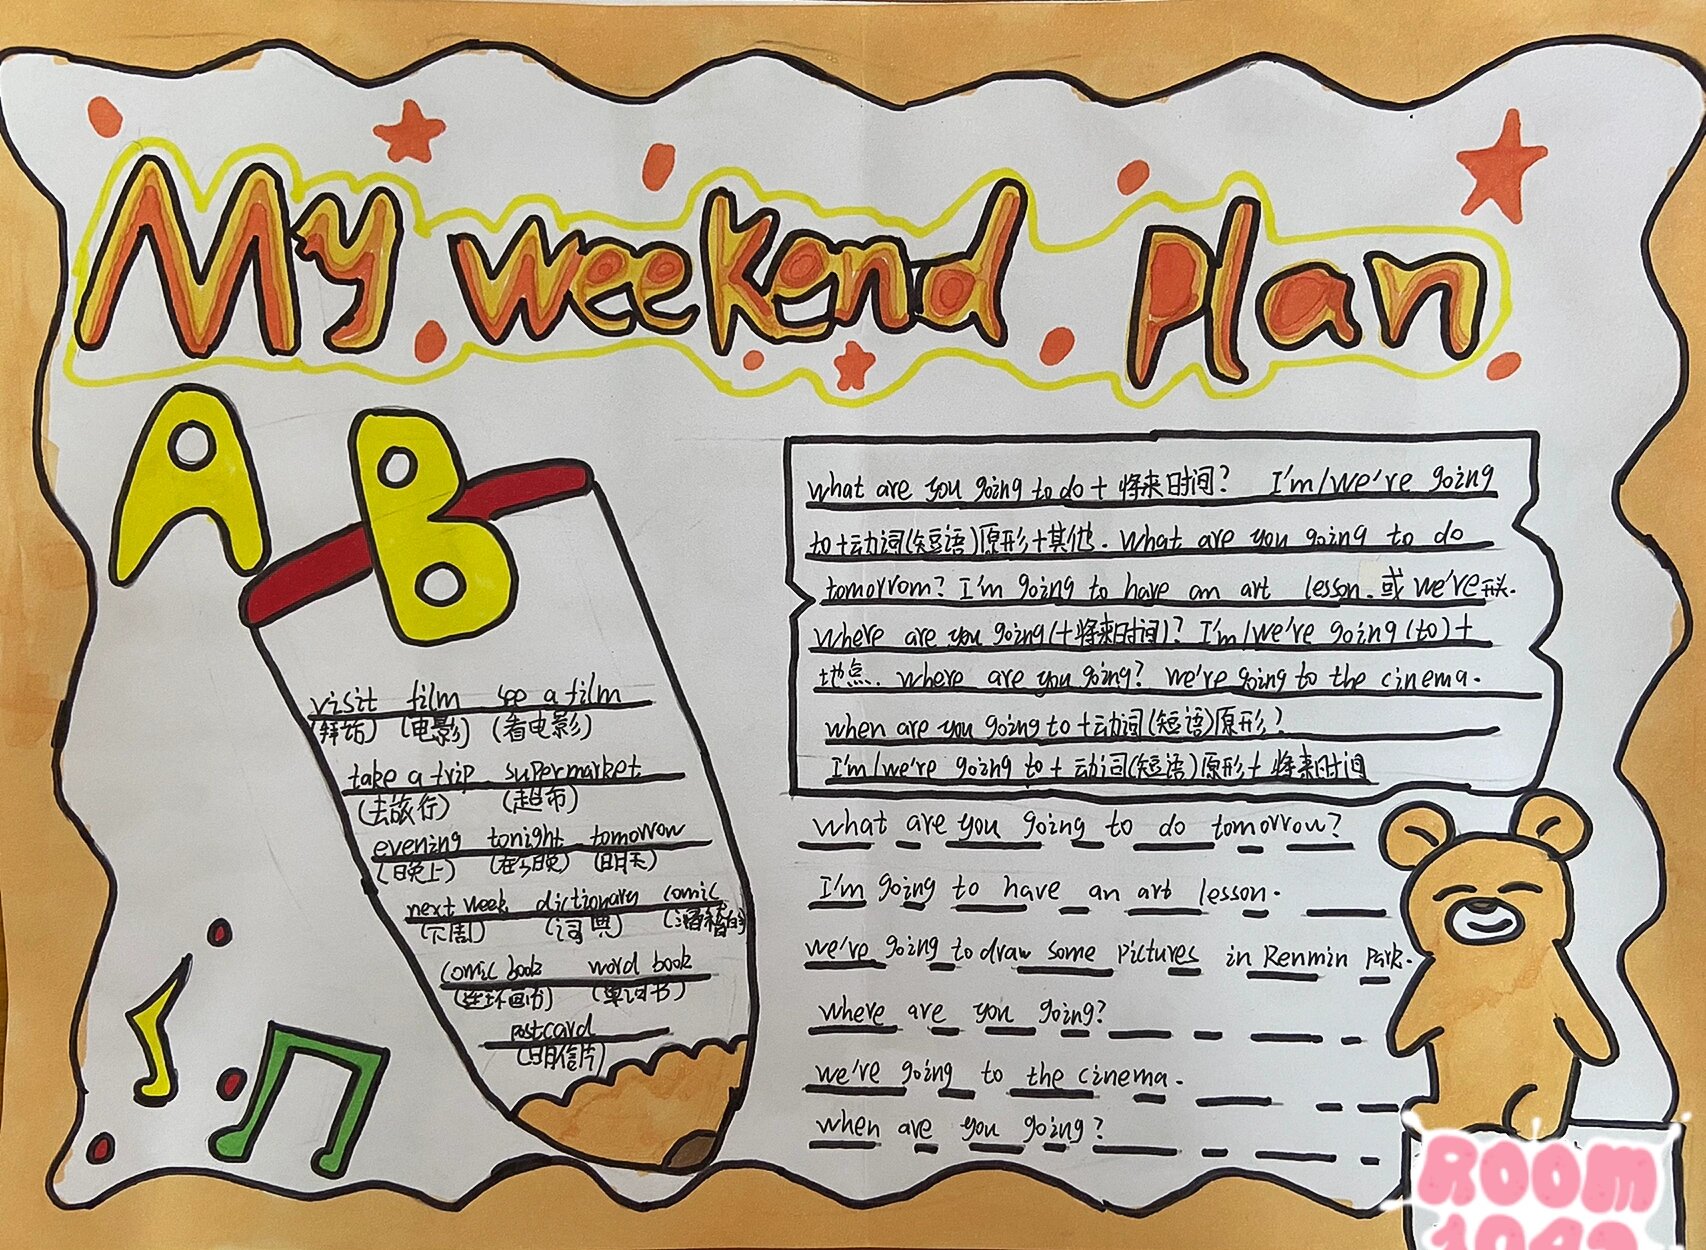 My weekend plan
A B
visit film see a film
(拜访) (电影) (看电影)
take a trip supermarket
(去旅行) (超市)
evening tonight tomorrow
(日晚上) (在今晚) (明天)
next week dictionary comic
(下周) (词典) (滑稽的)
comic book word book
(连环画书) (单词书)
postcard
(明信片)
what are you going to do + 将来时间? I'm/we're going
to +动词(短语)原形+其他. What are you going to do
tomorrom? I'm going to have an art lesson. 或 we're开头.
where are you going(+将来时间)? I'm/we're going (to) +
地点. where are you going? we're going to the cinema.
when are you going to +动词(短语)原形?
I'm/we're going to + 动词(短语)原形+ 将来时间
what are you going to do tomorrow?
I'm going to have an art lesson.
we're going to draw some pictures in Renmin park.
where are you going?
we're going to the cinema.
when are you going?
ROOM